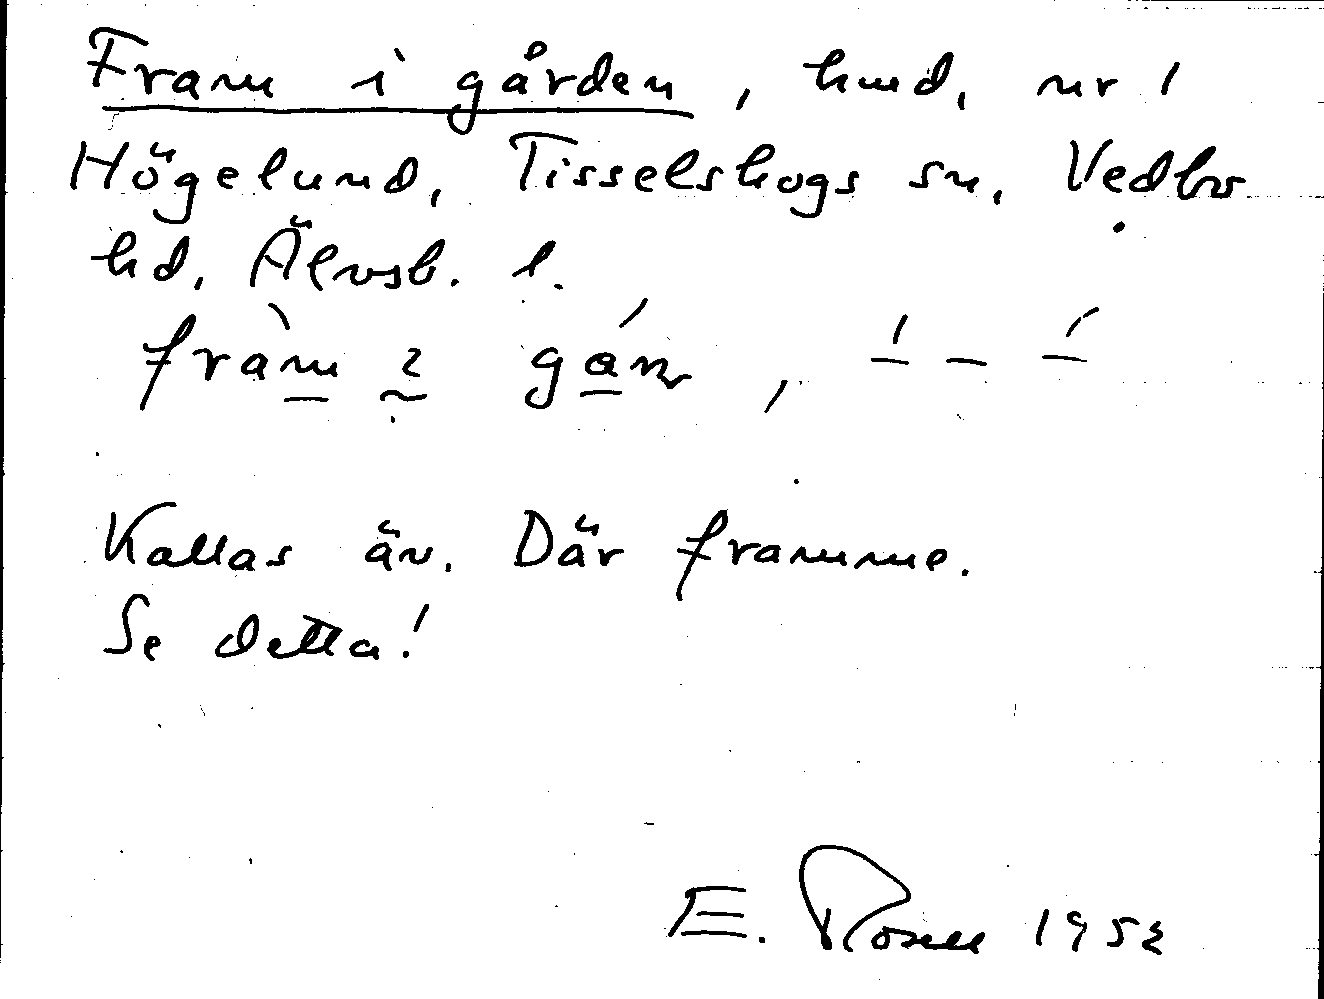 Fram i gården, hmd, nr 1
Högelund, Tisselskogs sn, Vedbo
hd, Älvsb. l.
Kallas äv. Där framme.
Se detta!
E. Rosell 1952